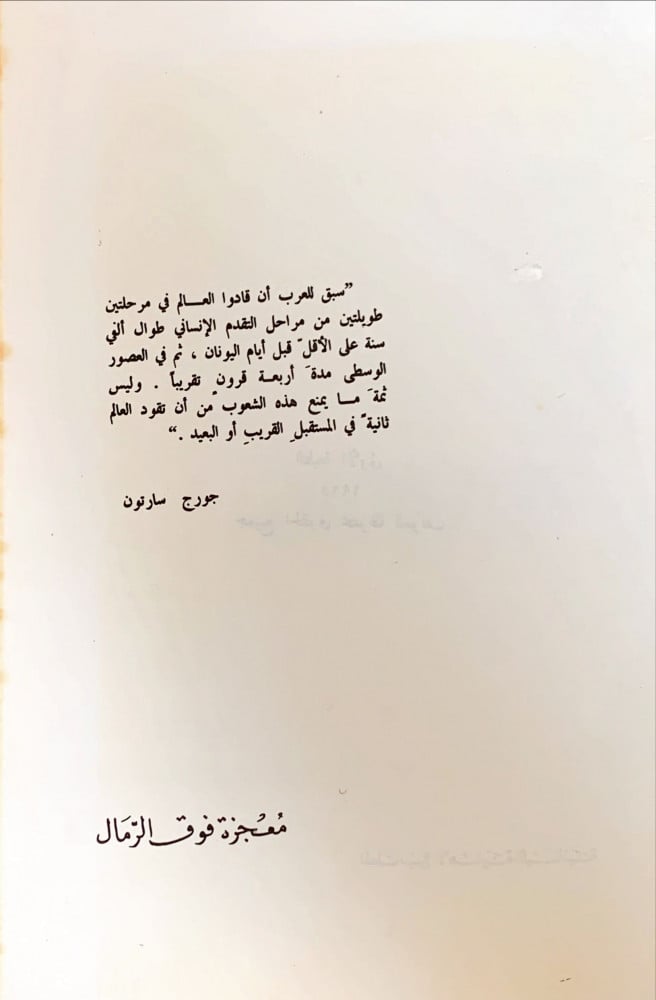 ”سبق للعرب أن قادوا العـــالم في مرحلتين
طويلتين من مراحل التقدم الإنساني طوال ألفي
سنة على الأقلّ قبل أيام اليونان ، ثم في العصور
الوسطى مدةَ أربعـة قرونٍ تقريباً . وليس
ثمةَ مـــا يمنع هذه الشعوب من أن تقود العالم
ثانيةً في المستقبلِ القريبِ أو البعيد .“
جورج سارتون
مُعْجزة فوق الرّمَال